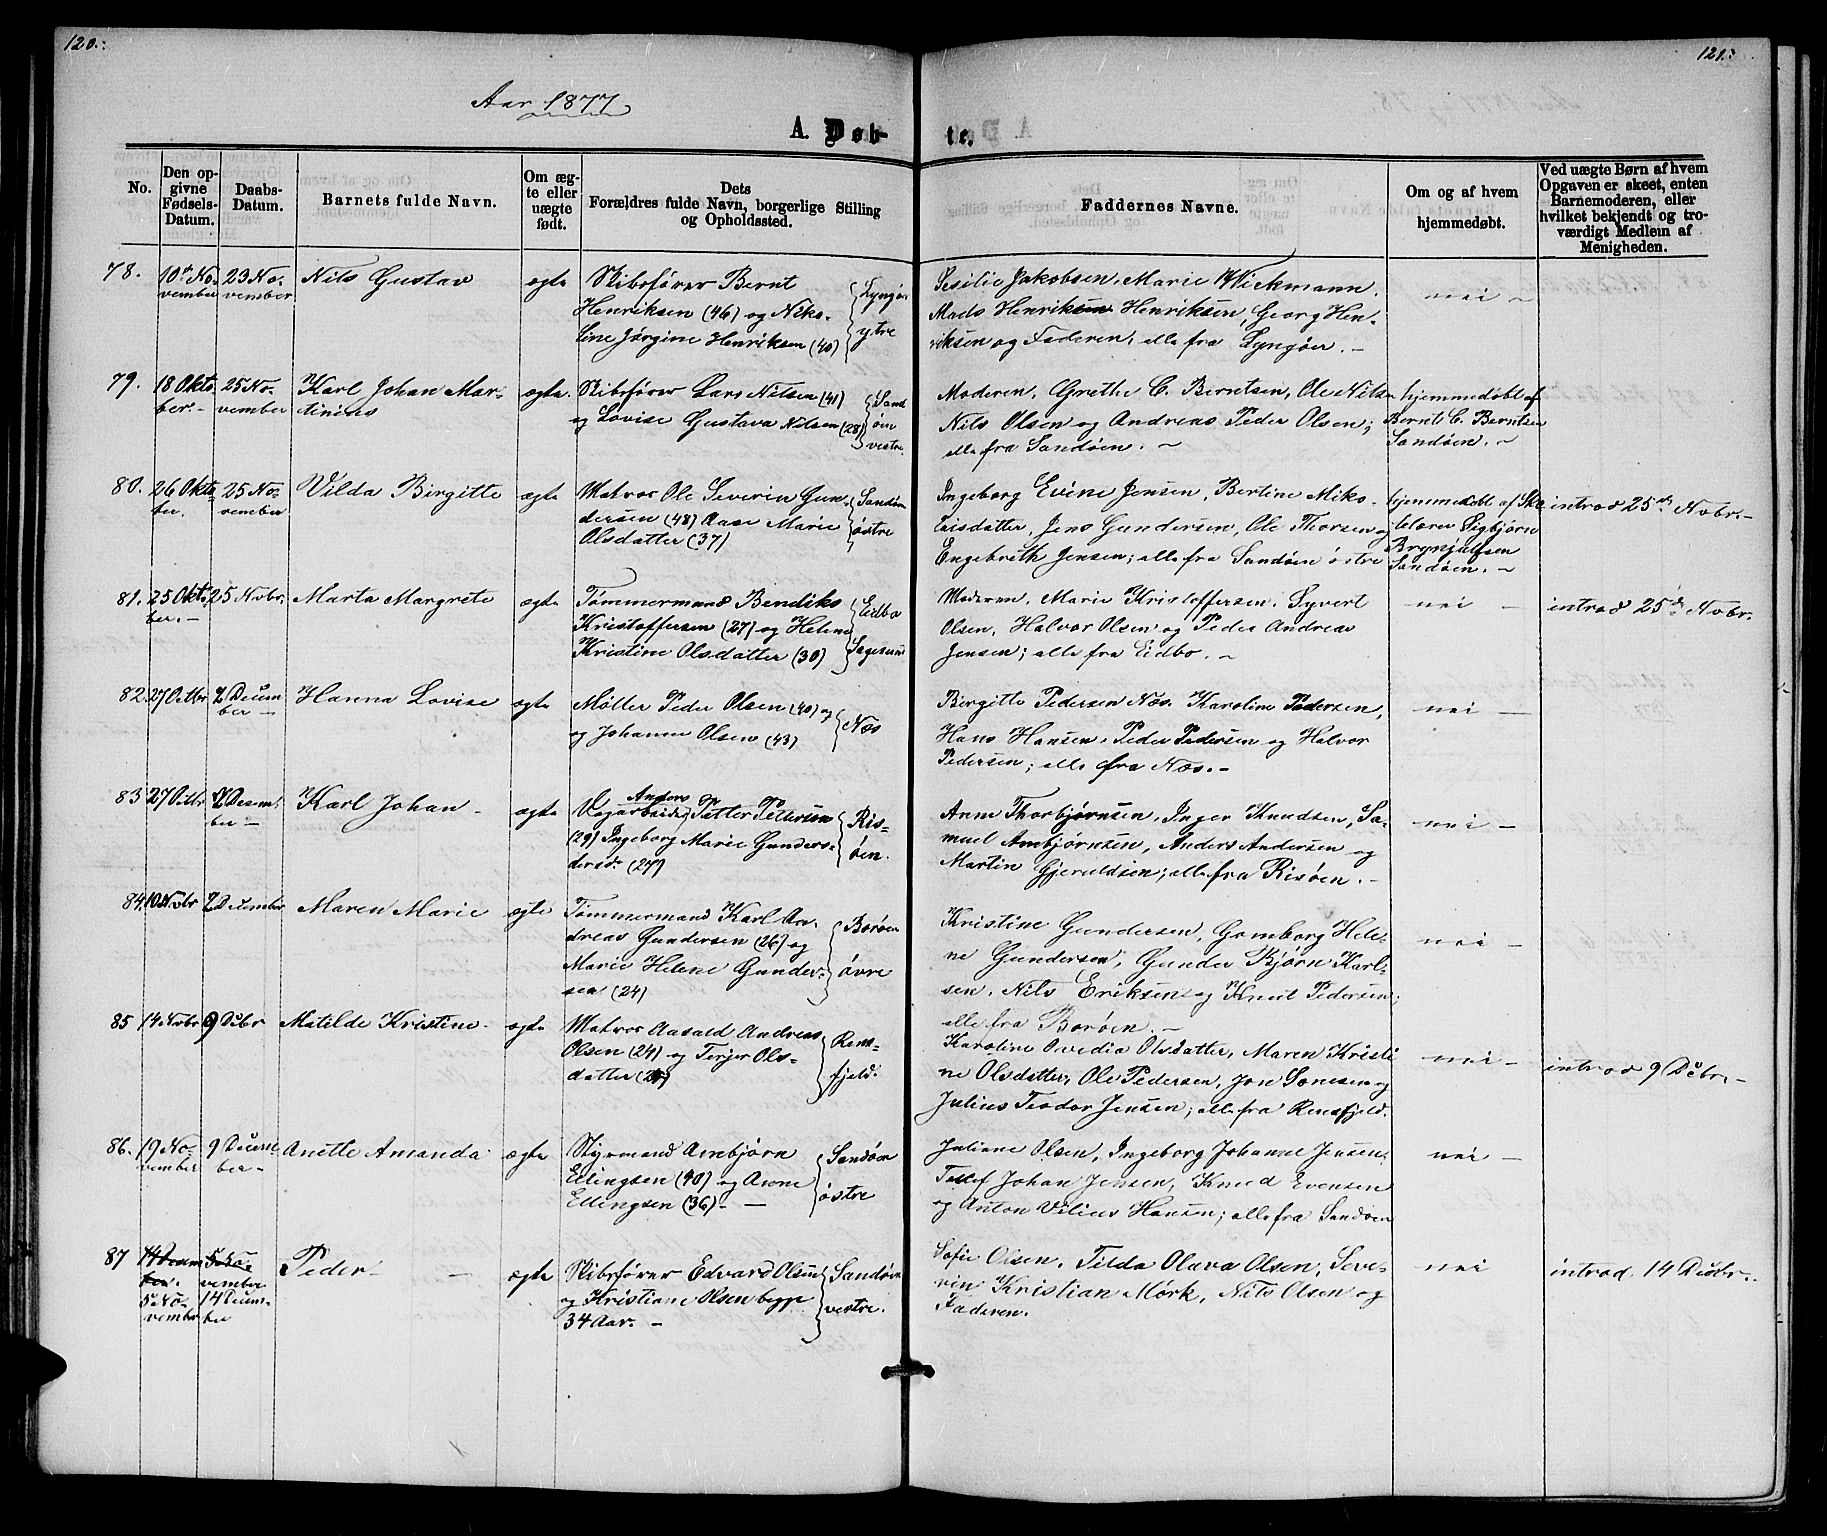 120.
121.
Aar 1877
A. Døb-
te.
No.
Den op-
givne
Fødsels-
Datum.
Daabs-
Datum.
Barnets fulde Navn.
Om æg-
te eller
uægte
født.
Dets
Forældres fulde Navn, borgerlige Stilling
og Opholdssted.
Faddernes Navne.
Om og af hvem
hjemmedøbt.
Ved uægte Børn af hvem
Opgaven er skeet, enten
Barnemoderen, eller
hvilket bekjendt og tro-
værdigt Medlem af
Menigheden.
78.
10de No-
vember
23 No-
vember
Nils Gustav
ægte
Skibsfører Bernt
Henriksen (46) og Niko-
line Jørgine Henriksen (40)
Lyngør
ytre
Sesilie Jakobsen, Marie Wickmann,
Mads Henriksen Henriksen, Georg Hen-
riksen og Faderen, alle fra Lyngøer. -
nei -
79.
18 Okto-
ber. -
25 No-
vember
Karl Johan Mar-
tinius
ægte.
Skibsfører Lars Nilsen (41)
og Lovise Gustava Nilsen (28)
Sand
øen
vestre.
Moderen, Grethe C. Berntsen, Ole Nilsen
Nils Olsen og Andreas Peder Olsen;
alle fra Sandøen. -
hjemmedøbt af
Bernt C. Berntsen
Sandøen. -
80.
26 Okto-
ber.
25 No-
vember
Vilda Birgitte
ægte
Matros Ole Severin Gun-
dersen (48) Aase Marie
Olsdatter (37)
Sandøen
østre
Ingeborg Evine Jensen, Bertine Miko-
laisdatter, Jens Gundersen, Ole Thorsen og
Engebreth Jensen; alle fra Sandøen østre
hjemmedøbt af Sko-
lelærer Sigbjørn
Brynjulfsen
Sandøen. -
introd 25de Nvbr. -
81.
25 Okto-
ber. -
25 Nvbr.
Marta Margrete
ægte
Tømmermand Bendiks
Kristoffersen (27) og Helene
Kristine Olsdatter (30)
Eidbo
Sagesund
Moderen, Marie Kristoffersen, Syvert
Olsen, Halvor Olsen og Peder Andreas
Jensen; alle fra Eidbo. -
nei -
introd 25de Nvbr.
82.
27 Octbr
2 Decem-
ber -
Hanna Lovise
ægte
Møller Peder Olsen (40) og
og Johanne Olsen (43)
Næs
Birgitte Pedersen Næs, Karoline Pedersen,
Hans Hansen, Peder Pedersen og Halvor
Pedersen; alle fra Næs. -
nei -
83
27 Octbr
2 Desem-
ber -
Karl Johan -
ægte
Anders
Dagarbeider Petter Pettersen
(29) Ingeborg Marie Gunders-
dersd. (27)
Ris-
øen.
Anne Thorbjørnsen, Inger Knudsen, Sa-
muel Ambjørnsen, Anders Andersen og
Martin Gjeruldsen; alle fra Risøen. -
nei -
84.
10 Nvbr
2 December
Maren Marie
ægte
Tømmermand Karl An-
dreas Gundersen (26) og
Marie Helene Gunder-
sen (24)
Borøen
øvre
Kristine Gundersen, Gomborg Hele-
ne Gundersen, Gunder Bjørn Karl-
sen, Nils Eriksen og Knut Pedersen;
alle fra Borøen. -
nei -
85
14 Nvbr
9 Dcbr
Matilde Kristine -
ægte
Matros Aasald Andreas
Olsen (24) og Terjer Ols-
datter
Rens-
fjeld.
Karoline Ovedia Olsdatter, Maren Kristi
ne Olsdatter, Ole Pedersen, Jon Sonesen og
Julius Teodor Jensen; alle fra Rensfjeld.
nei -
introd 9 Dcbr. -
86.
19 No-
vember
9 Decem-
ber -
Anette Amanda
ægte
Styrmand Ambjørn
Ellingsen (40) og Anne
Ellingsen (36) - -
Sandøen
østre
Juliane Olsen, Ingeborg Johanne Jensen,
Tellef Johan Jensen, Knud Evensen
og Anton Vilius Hansen; alle fra Sandøen
nei -
87
14 Decem
ber.
5 No-
vember
5 No-
vember
14 Decem-
ber
Peder -
ægte
Skibsfører Edvard Olsen
og Kristiane Olsen begge
34 Aar. -
Sandøen
vestre.
Sofie Olsen, Tilda Olava Olsen, Seve-
rin Kristian Mørk, Nils Olsen og
Faderen.
nei
introd. 14 Decbr.